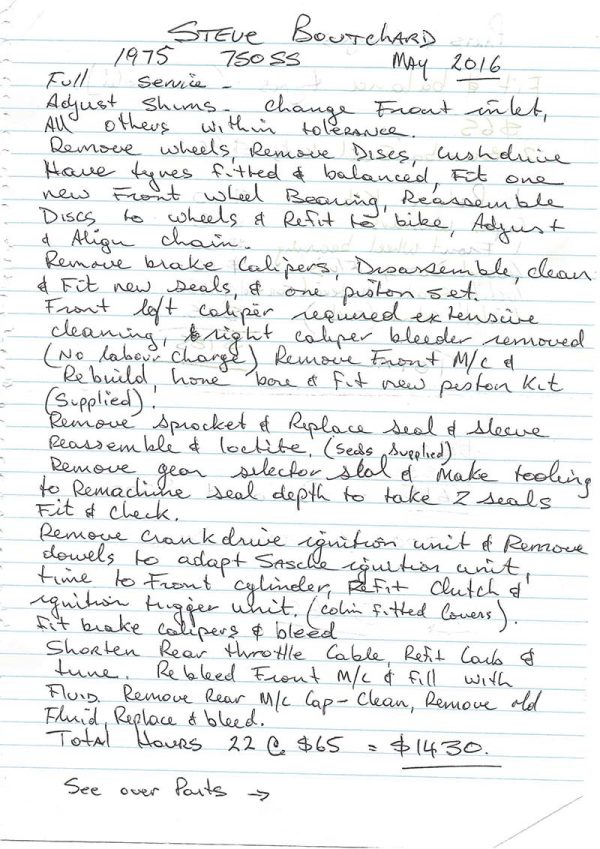 STEVE BOUTCHARD
1975 750SS MAY 2016
Full service -
Adjust shims. change Front inlet,
All others within tolerance.
Remove wheels, Remove Discs, Cushdrive
Have tyres fitted & balanced, Fit one
new Front wheel Bearing, Reassemble
Discs to wheels & Refit to bike, Adjust
& Align chain.
Remove brake Calipers, Disassemble, clean
& Fit new seals, & one piston set.
Front left caliper required extensive
cleaning, right caliper bleeder removed
(No labour charge) Remove Front M/c &
Rebuild, hone bore & fit new piston Kit
(Supplied).
Remove sprocket & Replace seal & sleeve
Reassemble & loctite. (Seals Supplied)
Remove gear selector & Make tooling
to Remachine seal depth to take 2 seals
Fit & check.
Remove crankdrive ignition unit & Remove
dowels to adapt Sasche ignition unit,
time to Front cylinder, Refit Clutch &
ignition trigger unit. (Colin fitted Covers).
Fit brake calipers & bleed
Shorten Rear throttle Cable, Refit Carb &
tune. Rebleed Front M/c & fill with
Fluid. Remove Rear M/c Cap - Clean, Remove old
Fluid, Replace & bleed.
Total Hours 22 @ $65 = $1430.
See over Parts →